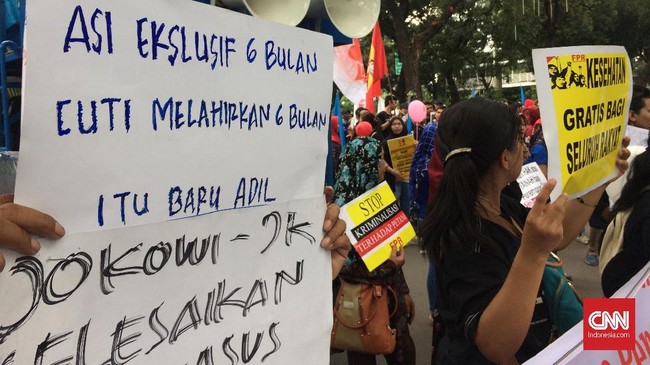 ASI EKSLUSIF 6 BULAN
CUTI MELAHIRKAN 6 BULAN
ITU BARU ADIL
JOKOWI-JK
SELESAIKAN
KASUS
STOP
KRIMINALISASI
TERHADAP PETANI
FPR
FPR
KESEHATAN
GRATIS BAGI
SELURUH RAKYAT
CNN
Indonesia.com